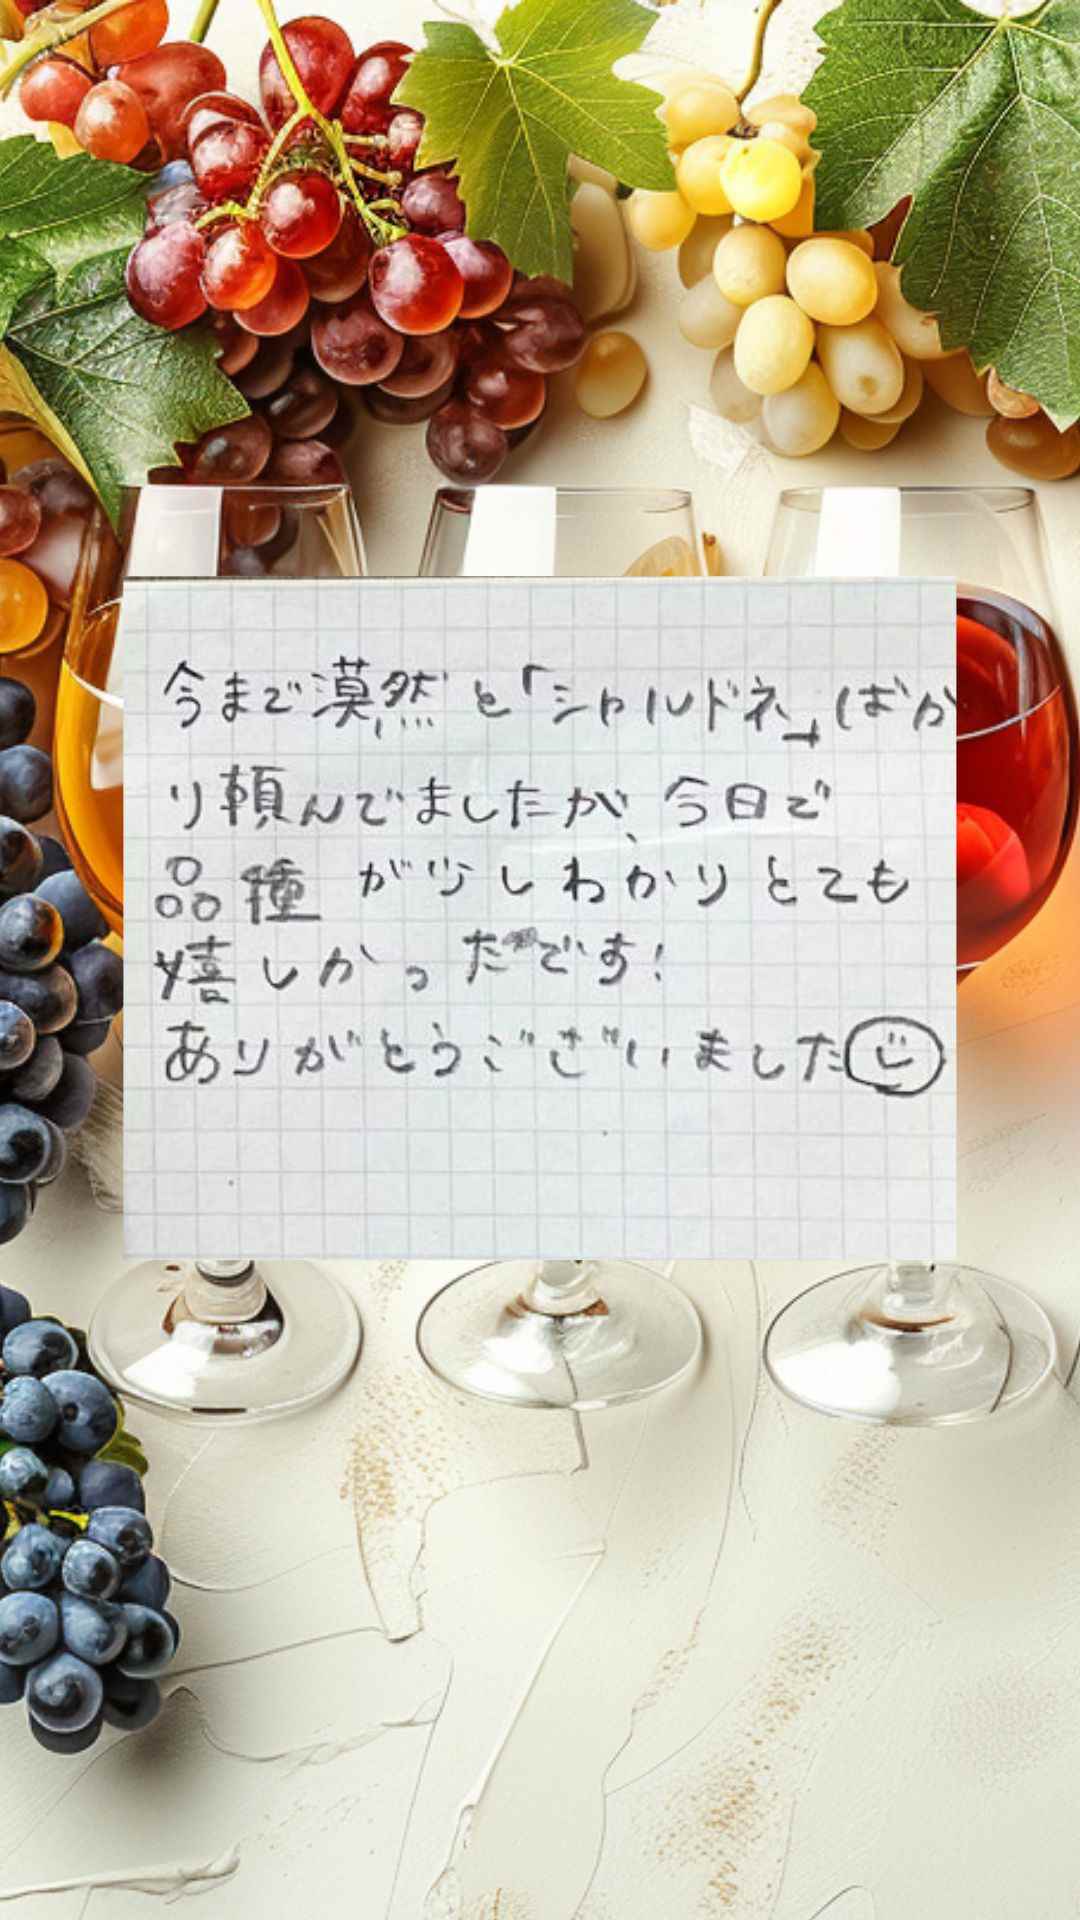 今まで漠然と「シャルドネ」ばか
り頼んでましたが、今日で
品種が少しわかりとても
嬉しかったです!
ありがとうございました